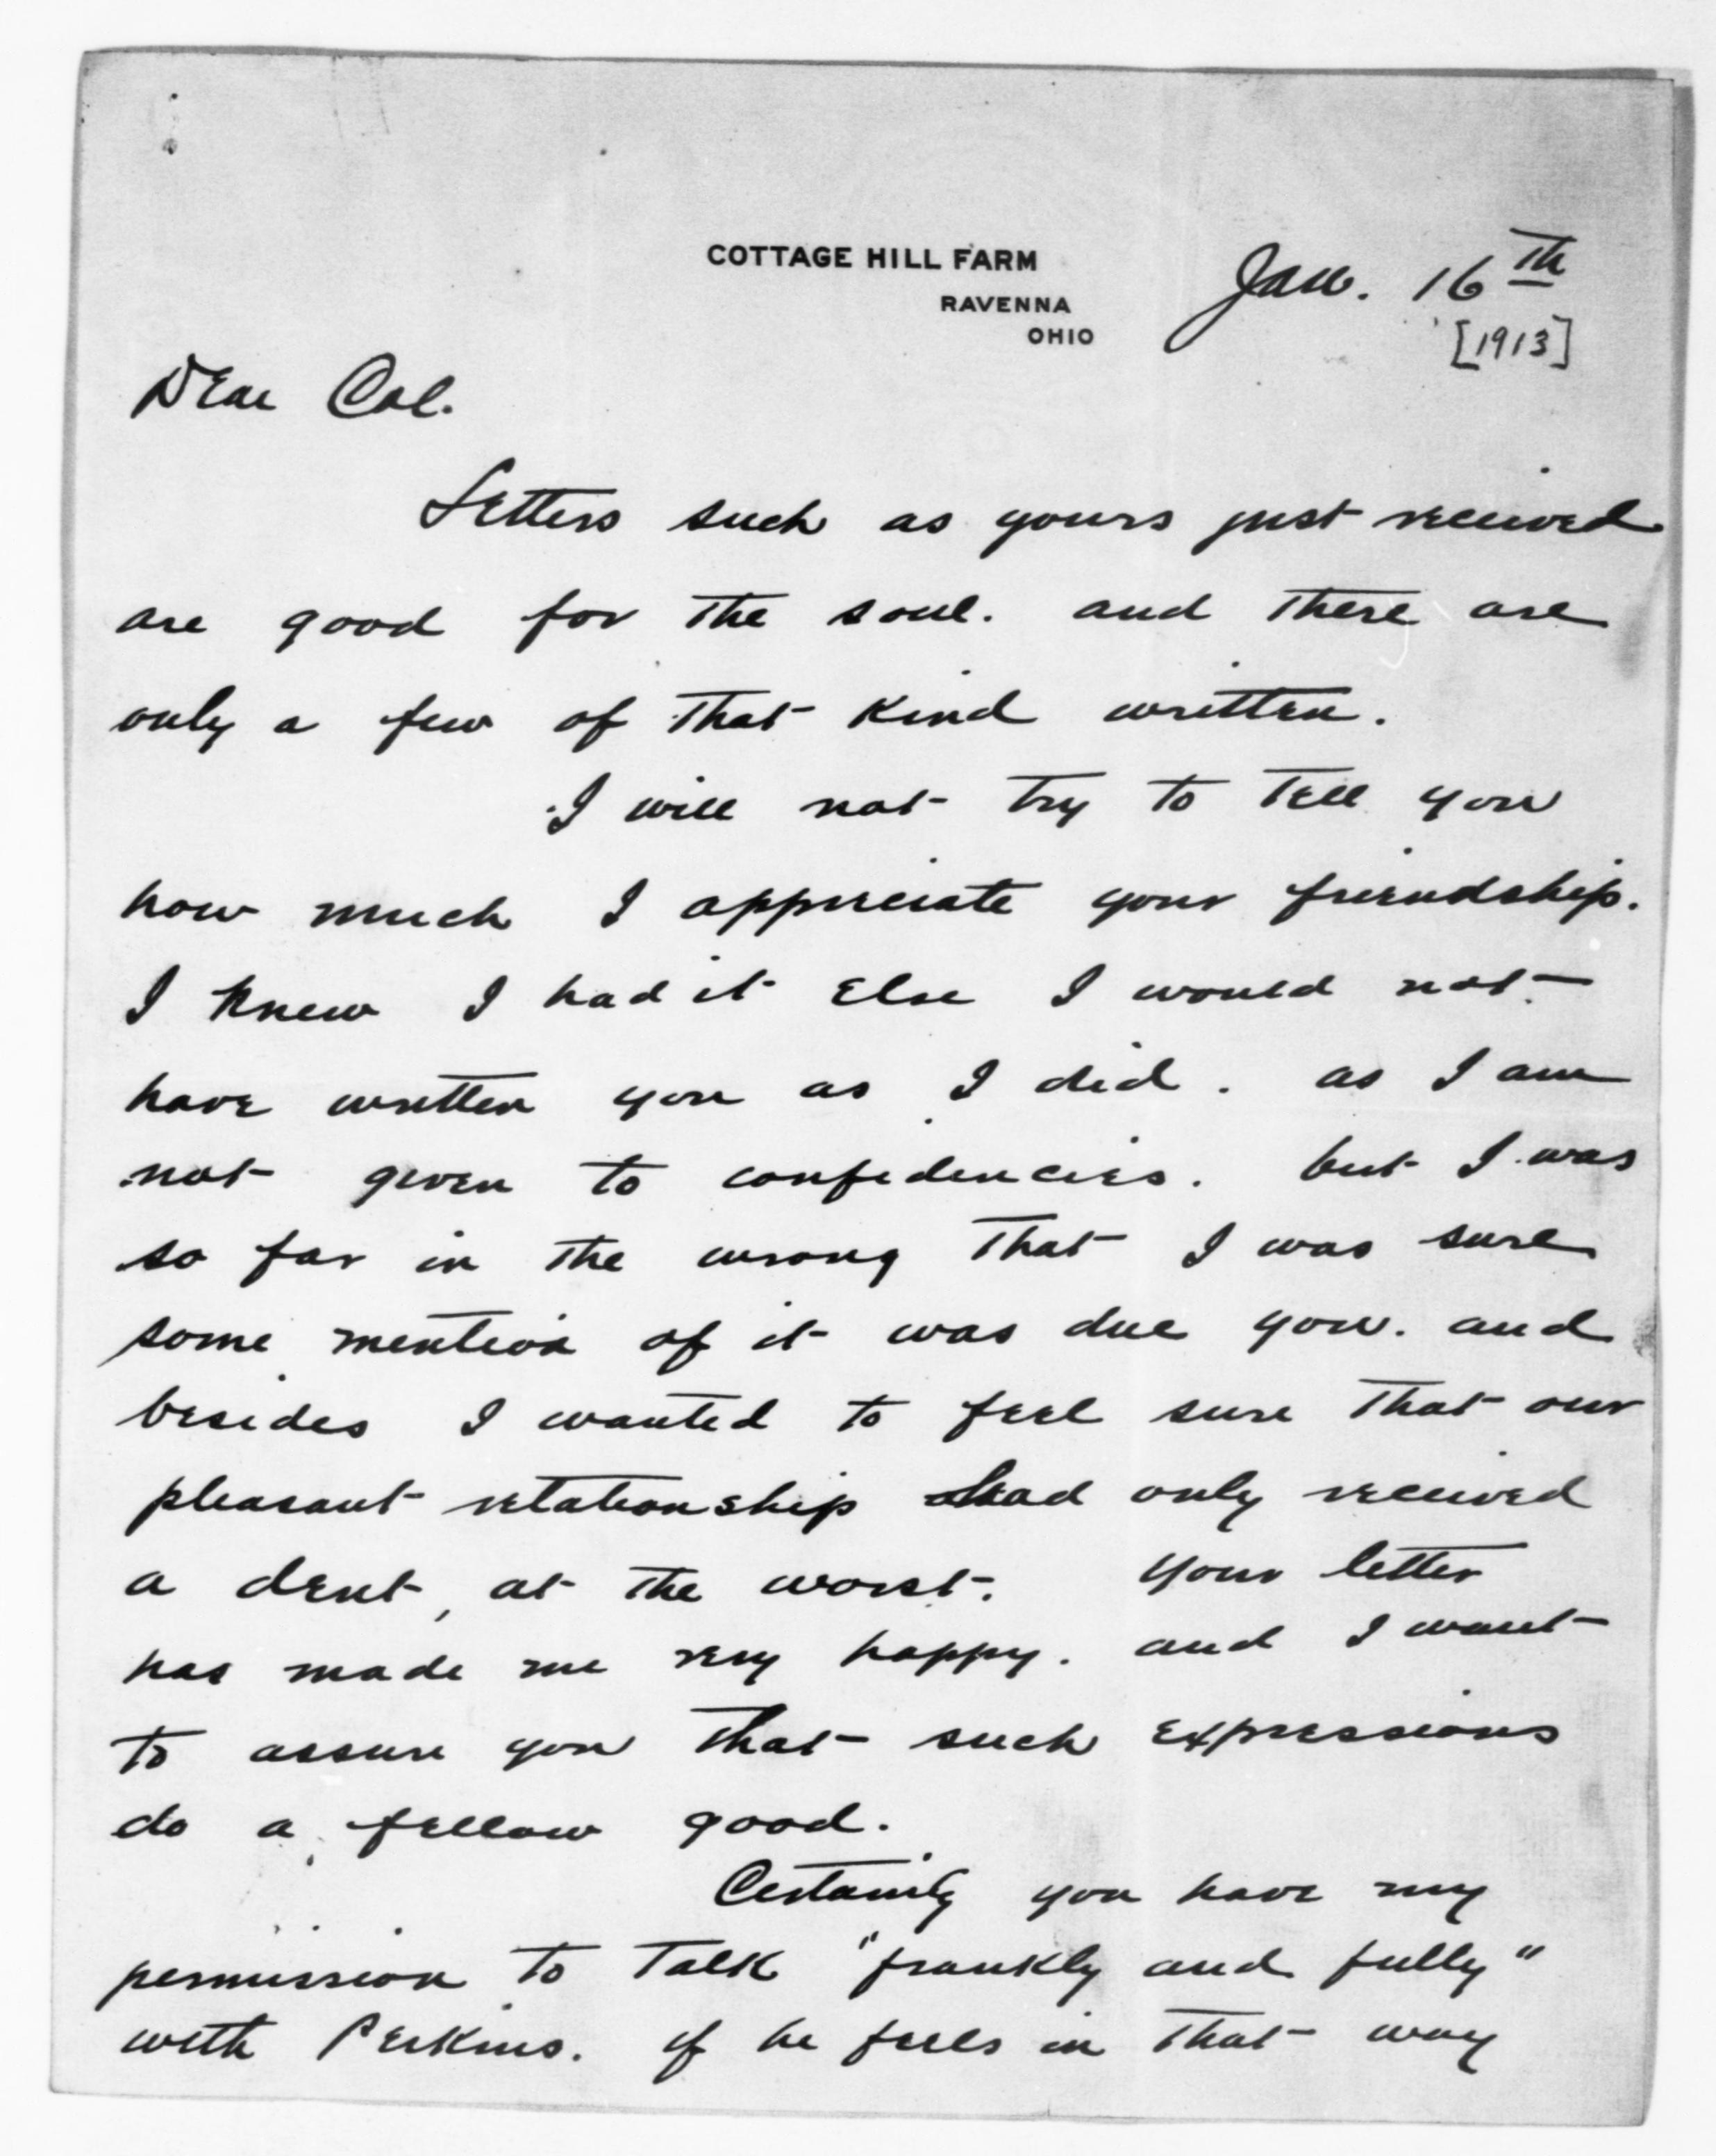 COTTAGE HILL FARM
RAVENNA
OHIO
Jan. 16th
[1913]
Dear Col.
Letters such as yours just received
are good for the soul. and there are
only a few of that kind written.
I will not try to tell you
how much I appreciate your friendship.
I knew I had it else I would not
have written you as I did. as I am
not given to confidencies. but I was
so far in the wrong that I was sure
some mention of it was due you. and
besides I wanted to feel sure that our
pleasant relationship had only received
a dent, at the worst. your letter
has made me very happy. and I want
to assure you that such expressions
do a fellow good.
Certainly you have my
permission to talk "frankly and fully"
with Perkins. if he feels in that way